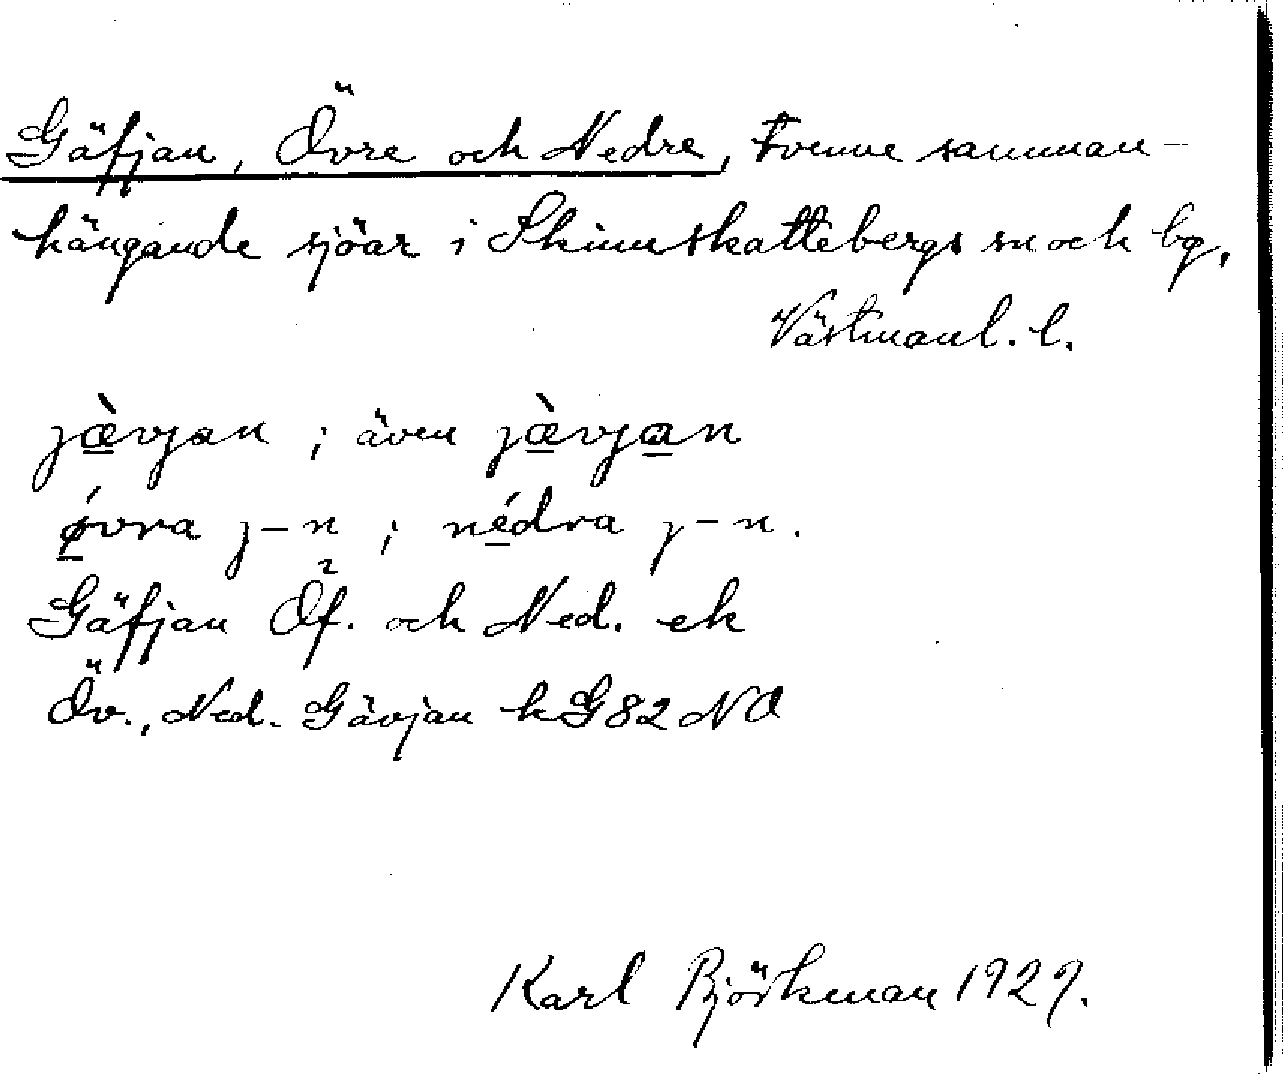 Gäfjan, Övre och Nedre, Tvenne samman-
hängande sjöar i Skinnskattebergs sn och bg,
Västmanl. l.
jæ̀vjan ; även jæ̀vjan
ǿvra j-n ; nédra j-n.
Gäfjan Öf. och Ned. ek
Öv., Ned. Gävjan kG82NO
Karl Björkman 1929.